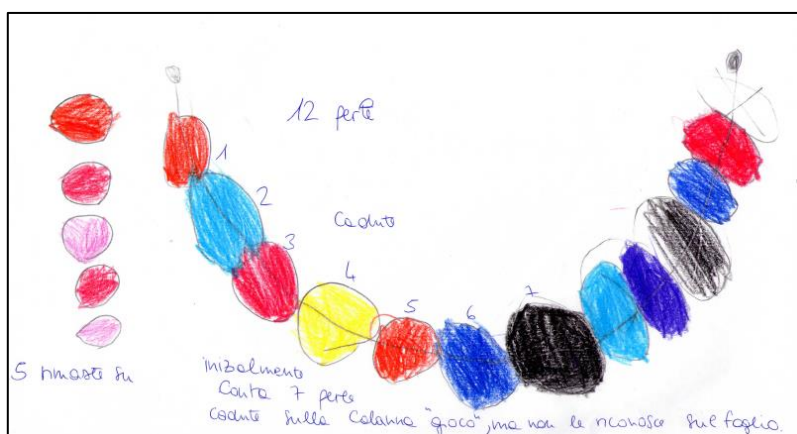 12 perle
1
2
Cadute
3
4
5
6
7
5 rimaste su
inizialmente
Conta 7 perle
cadute sulla Collana "gioco", ma non le riconosce sul foglio.